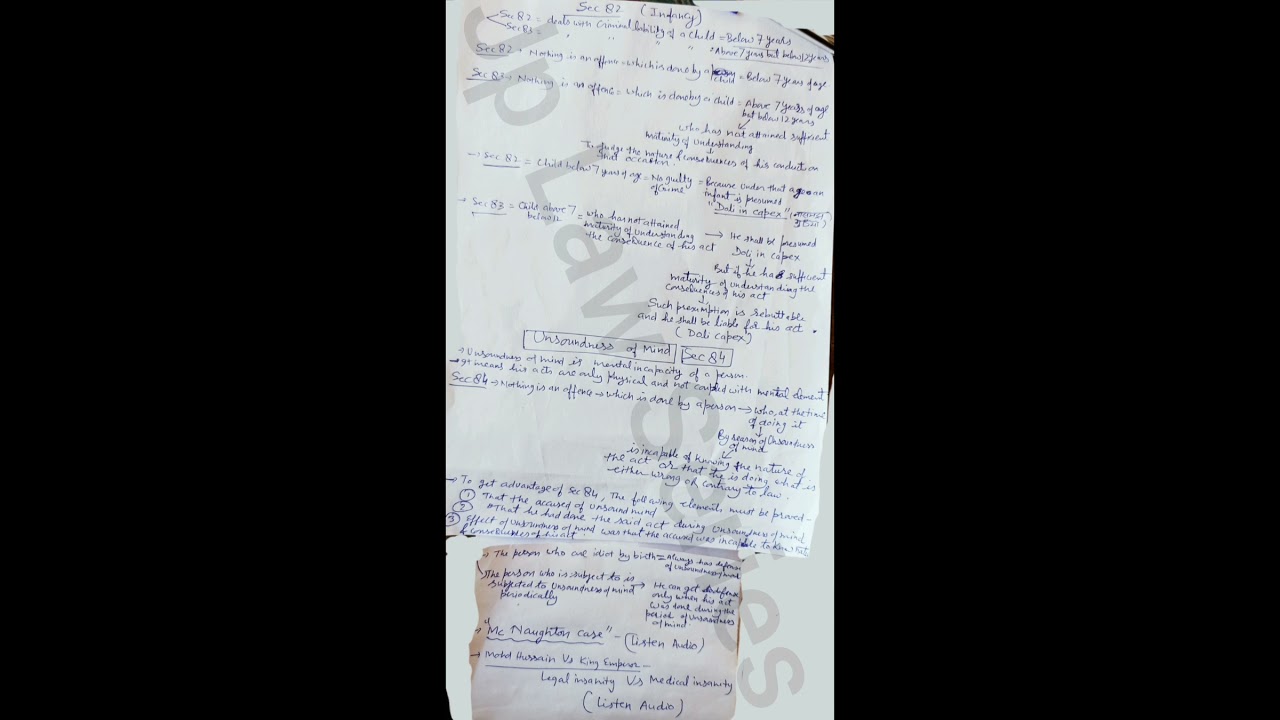 Sec 82 (Infancy)
Sec 82 = deals with Criminal liability of a child = Below 7 years
Sec 83 = " " " " " Above 7 years but below 12 years
Sec 82 → Nothing is an offence = which is done by a child = Below 7 years of age
Sec 83 → Nothing is an offence = which is done by a child = Above 7 years of age
but below 12 years
who has not attained sufficient
maturity of understanding
To judge the nature & consequences of his conduct on
that occasion.
→ Sec 82 = Child below 7 years of age = No guilty = Because under that age an
of crime infant is presumed
"Doli in capex"
→ Sec 83 = Child above 7 = who has not attained
below 12 maturity of understanding → He shall be presumed
the consequence of his act Doli in capex
But if he has sufficient
maturity of understanding the
consequences of his act
Such presumption is rebuttable
and he shall be liable for his act .
(Doli Capex)
Unsoundness of Mind Sec 84
→ Unsoundness of mind is mental incapacity of a person.
→ It means his acts are only physical and not coupled with mental element
Sec 84 → Nothing is an offence → which is done by a person → who, at the time
of doing it
By reason of Unsoundness
of mind
is incapable of knowing the nature of
the act or that he is doing what is
either wrong or contrary to law.
→ To get advantage of Sec 84, The following elements must be proved -
① That the accused of unsound mind
② That he had done the said act during Unsoundness of mind
③ Effect of Unsoundness of mind was that the accused was incapable to know
& consequences of his act
→ The person who are idiot by birth = Always has defense
of unsoundness of mind
→ The person who is subject to is → He can get defense
subjected to Unsoundness of mind only when his act
periodically was done during the
period of unsoundness
of mind.
→ "Mc Naughton Case" - (Listen Audio)
→ Mohd Hussain Vs King Emperor -
Legal insanity Vs Medical insanity
(Listen Audio)
Up Law Series